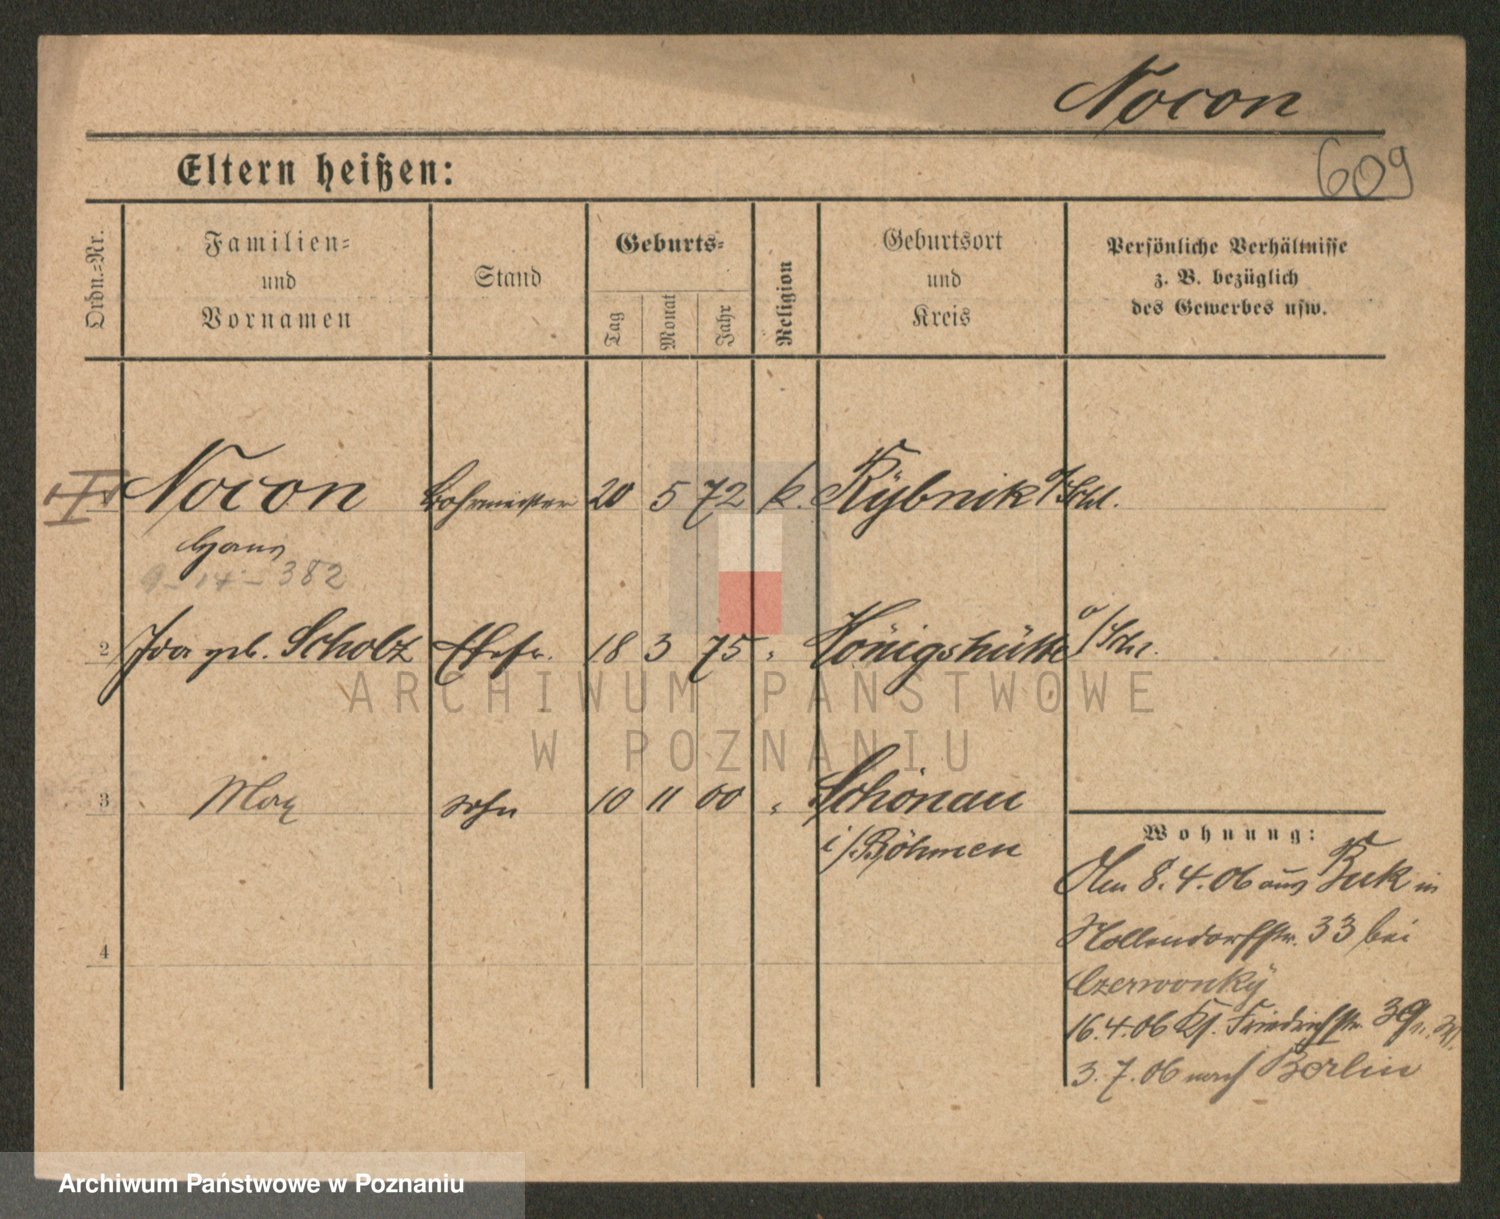 Nocon
609
Eltern heißen:
Ordn.-Nr.
Familien-
und
Vornamen
Stand
Geburts-
Tag
Monat
Jahr
Religion
Geburtsort
und
Kreis
Persönliche Verhältnisse
z. B. bezüglich
des Gewerbes usw.
Nocon Bohrmeister 20 5 72 k. Rybnik o/Schl.
Hans
9-14-382
2 Ida geb. Scholz Ehefr. 18 3 75 " Königshütte o/Schl.
ARCHIWUM PAŃSTWOWE
W POZNANIU
3 Max Sohn 10 11 00 " Schönau
i/Böhmen
Wohnung:
Am 8.4.06 aus Buk in
Hollendorffstr. 33 bei
Czerwonky
16.4.06 Friedrichstr. 39
4
3.7.06 nach Berlin
Archiwum Państwowe w Poznaniu